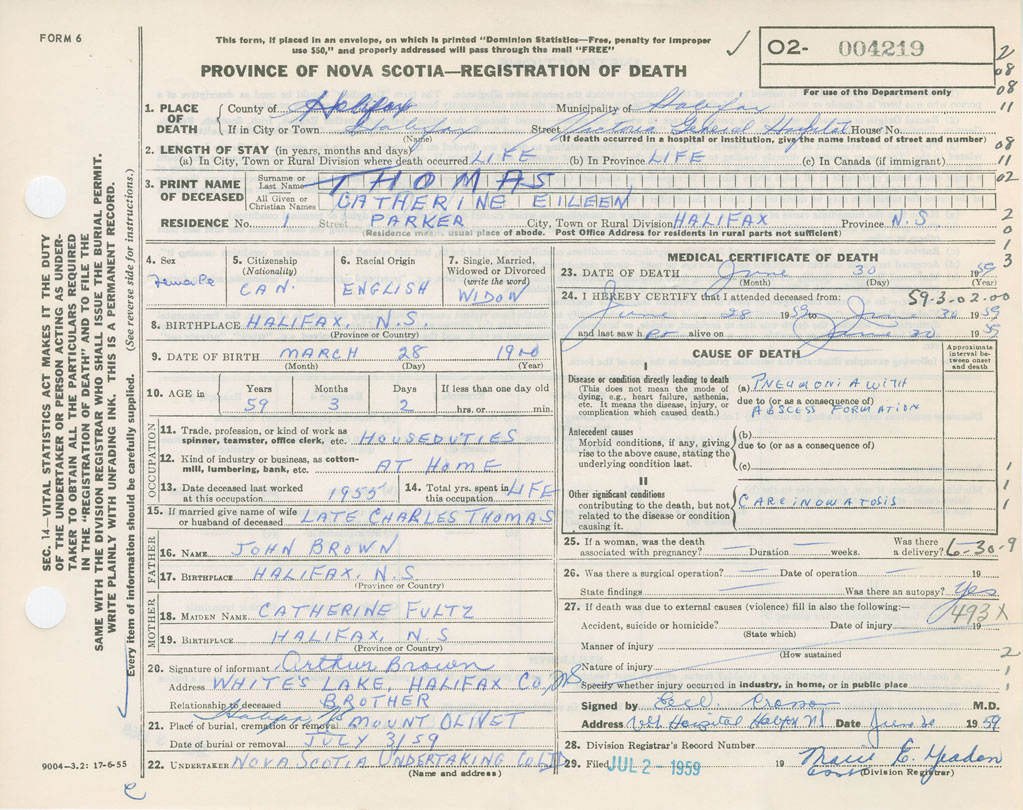 FORM 6
This form, if placed in an envelope, on which is printed "Dominion Statistics—Free, penalty for improper
use $50," and properly addressed will pass through the mail "FREE"
PROVINCE OF NOVA SCOTIA—REGISTRATION OF DEATH
O2- 004219
For use of the Department only
2
08
08
11
08
11
02
2
0
1
3
SEC. 14—VITAL STATISTICS ACT MAKES IT THE DUTY
OF THE UNDERTAKER OR PERSON ACTING AS UNDER-
TAKER TO OBTAIN ALL THE PARTICULARS REQUIRED
IN THE "REGISTRATION OF DEATH" AND TO FILE THE
SAME WITH THE DIVISION REGISTRAR WHO SHALL ISSUE THE BURIAL PERMIT.
WRITE PLAINLY WITH UNFADING INK. THIS IS A PERMANENT RECORD.
Every item of information should be carefully supplied. (See reverse side for instructions.)
1. PLACE OF DEATH
County of Halifax Municipality of Halifax
If in City or Town Halifax Street Victoria General Hospital House No.
(Name) (If death occurred in a hospital or institution, give the name instead of street and number)
2. LENGTH OF STAY (in years, months and days)
(a) In City, Town or Rural Division where death occurred LIFE (b) In Province LIFE (c) In Canada (if immigrant)
3. PRINT NAME OF DECEASED
Surname or Last Name THOMAS
All Given or Christian Names CATHERINE EILEEN
RESIDENCE No. 1 Street PARKER City, Town or Rural Division HALIFAX Province N.S
(Residence means usual place of abode. Post Office Address for residents in rural parts not sufficient)
4. Sex
Female
5. Citizenship
(Nationality)
CAN.
6. Racial Origin
ENGLISH
7. Single, Married,
Widowed or Divorced
(write the word)
WIDOW
8. BIRTHPLACE HALIFAX, N.S.
(Province or Country)
9. DATE OF BIRTH MARCH 28 1900
(Month) (Day) (Year)
10. AGE in
Years Months Days If less than one day old
59 3 2 hrs. or min.
OCCUPATION
11. Trade, profession, or kind of work as
spinner, teamster, office clerk, etc. HOUSEDUTIES
12. Kind of industry or business, as cotton-
mill, lumbering, bank, etc. AT HOME
13. Date deceased last worked
at this occupation 1955
14. Total yrs. spent in
this occupation LIFE
15. If married give name of wife
or husband of deceased LATE CHARLES THOMAS
FATHER
16. NAME JOHN BROWN
17. BIRTHPLACE HALIFAX, N.S.
(Province or Country)
MOTHER
18. MAIDEN NAME CATHERINE FULTZ
19. BIRTHPLACE HALIFAX, N.S
(Province or Country)
20. Signature of informant Arthur Brown
Address WHITE'S LAKE, HALIFAX Co, NS
Relationship to deceased BROTHER
21. Place of burial, cremation or removal Halifax MOUNT OLIVET
Date of burial or removal JULY 3/59
22. UNDERTAKER NOVA SCOTIA UNDERTAKING CO LTD
(Name and address)
9004—3.2: 17-6-55
MEDICAL CERTIFICATE OF DEATH
23. DATE OF DEATH June 30 1959
(Month) (Day) (Year)
24. I HEREBY CERTIFY that I attended deceased from: 59-3-02-00
June 28 1959 to June 30 1959
and last saw her alive on June 30 1959
CAUSE OF DEATH
Approximate
interval be-
tween onset
and death
I
Disease or condition directly leading to death
(This does not mean the mode of
dying, e.g., heart failure, asthenia,
etc. It means the disease, injury, or
complication which caused death.)
(a) PNEUMONIA WITH
due to (or as a consequence of)
ABSCESS FORMATION
Antecedent causes
Morbid conditions, if any, giving
rise to the above cause, stating the
underlying condition last.
(b)
due to (or as a consequence of)
(c)
II
Other significant conditions
contributing to the death, but not
related to the disease or condition
causing it.
CARCINOMATOSIS
1
1
1
25. If a woman, was the death
associated with pregnancy? — Duration — weeks.
Was there
a delivery? 6-30-9
26. Was there a surgical operation? — Date of operation — 19
State findings — Was there an autopsy? Yes
27. If death was due to external causes (violence) fill in also the following:—
493X
Accident, suicide or homicide? Date of injury 19
(State which)
Manner of injury
(How sustained
2
Nature of injury
1
Specify whether injury occurred in industry, in home, or in public place
1
Signed by M.D.
Address V.G. Hospital Halifax NS Date June 30 1959
28. Division Registrar's Record Number
29. Filed JUL 2 - 1959 19 Marie E. Yeadon
(Division Registrar)